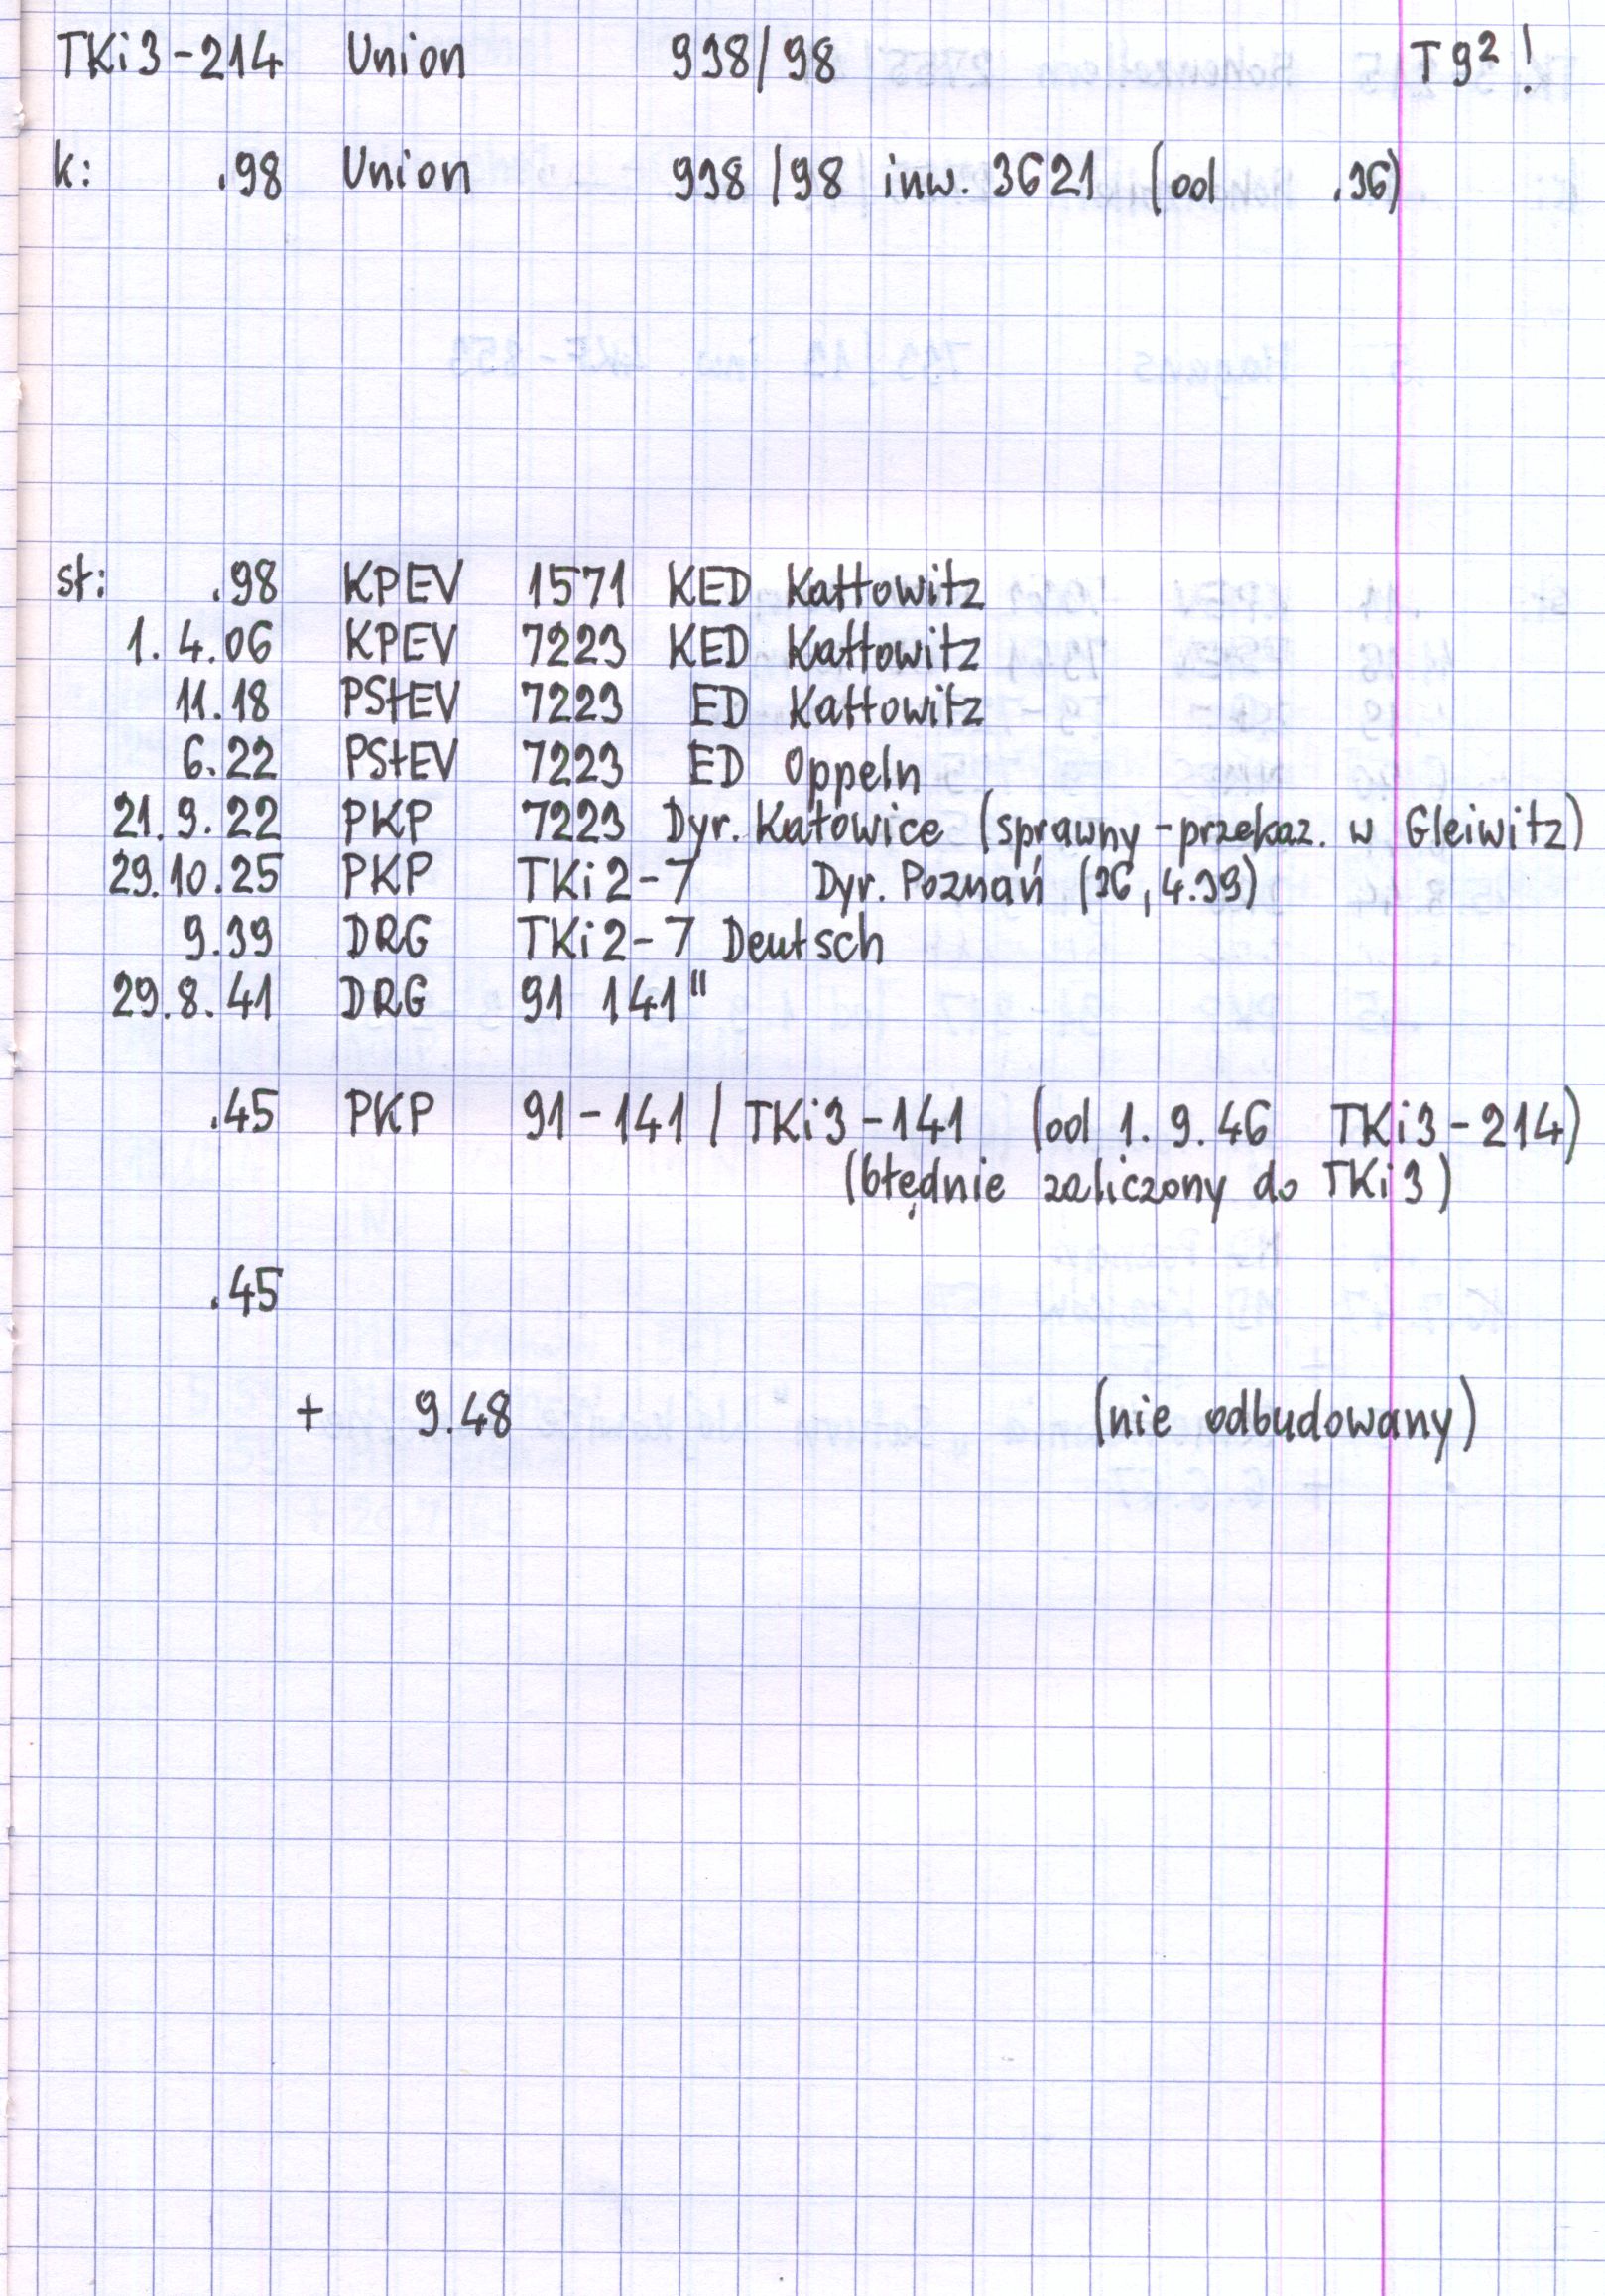 TKi3-214 Union 938/98 T9² !
k: .98 Union 938/98 inw. 3621 (od .36)
st: .98 KPEV 1571 KED Kattowitz
1.4.06 KPEV 7223 KED Kattowitz
11.18 PStEV 7223 ED Kattowitz
6.22 PStEV 7223 ED Oppeln
21.9.22 PKP 7223 Dyr. Katowice (sprawny - przekaz. w Gleiwitz)
29.10.25 PKP TKi2-7 Dyr. Poznań (36, 4.39)
9.39 DRG TKi2-7 Deutsch
29.8.41 DRG 91 141"
.45 PKP 91-141 / TKi3-141 (od 1.9.46 TKi3-214)
(błędnie zaliczony do TKi3)
.45
+ 9.48 (nie odbudowany)